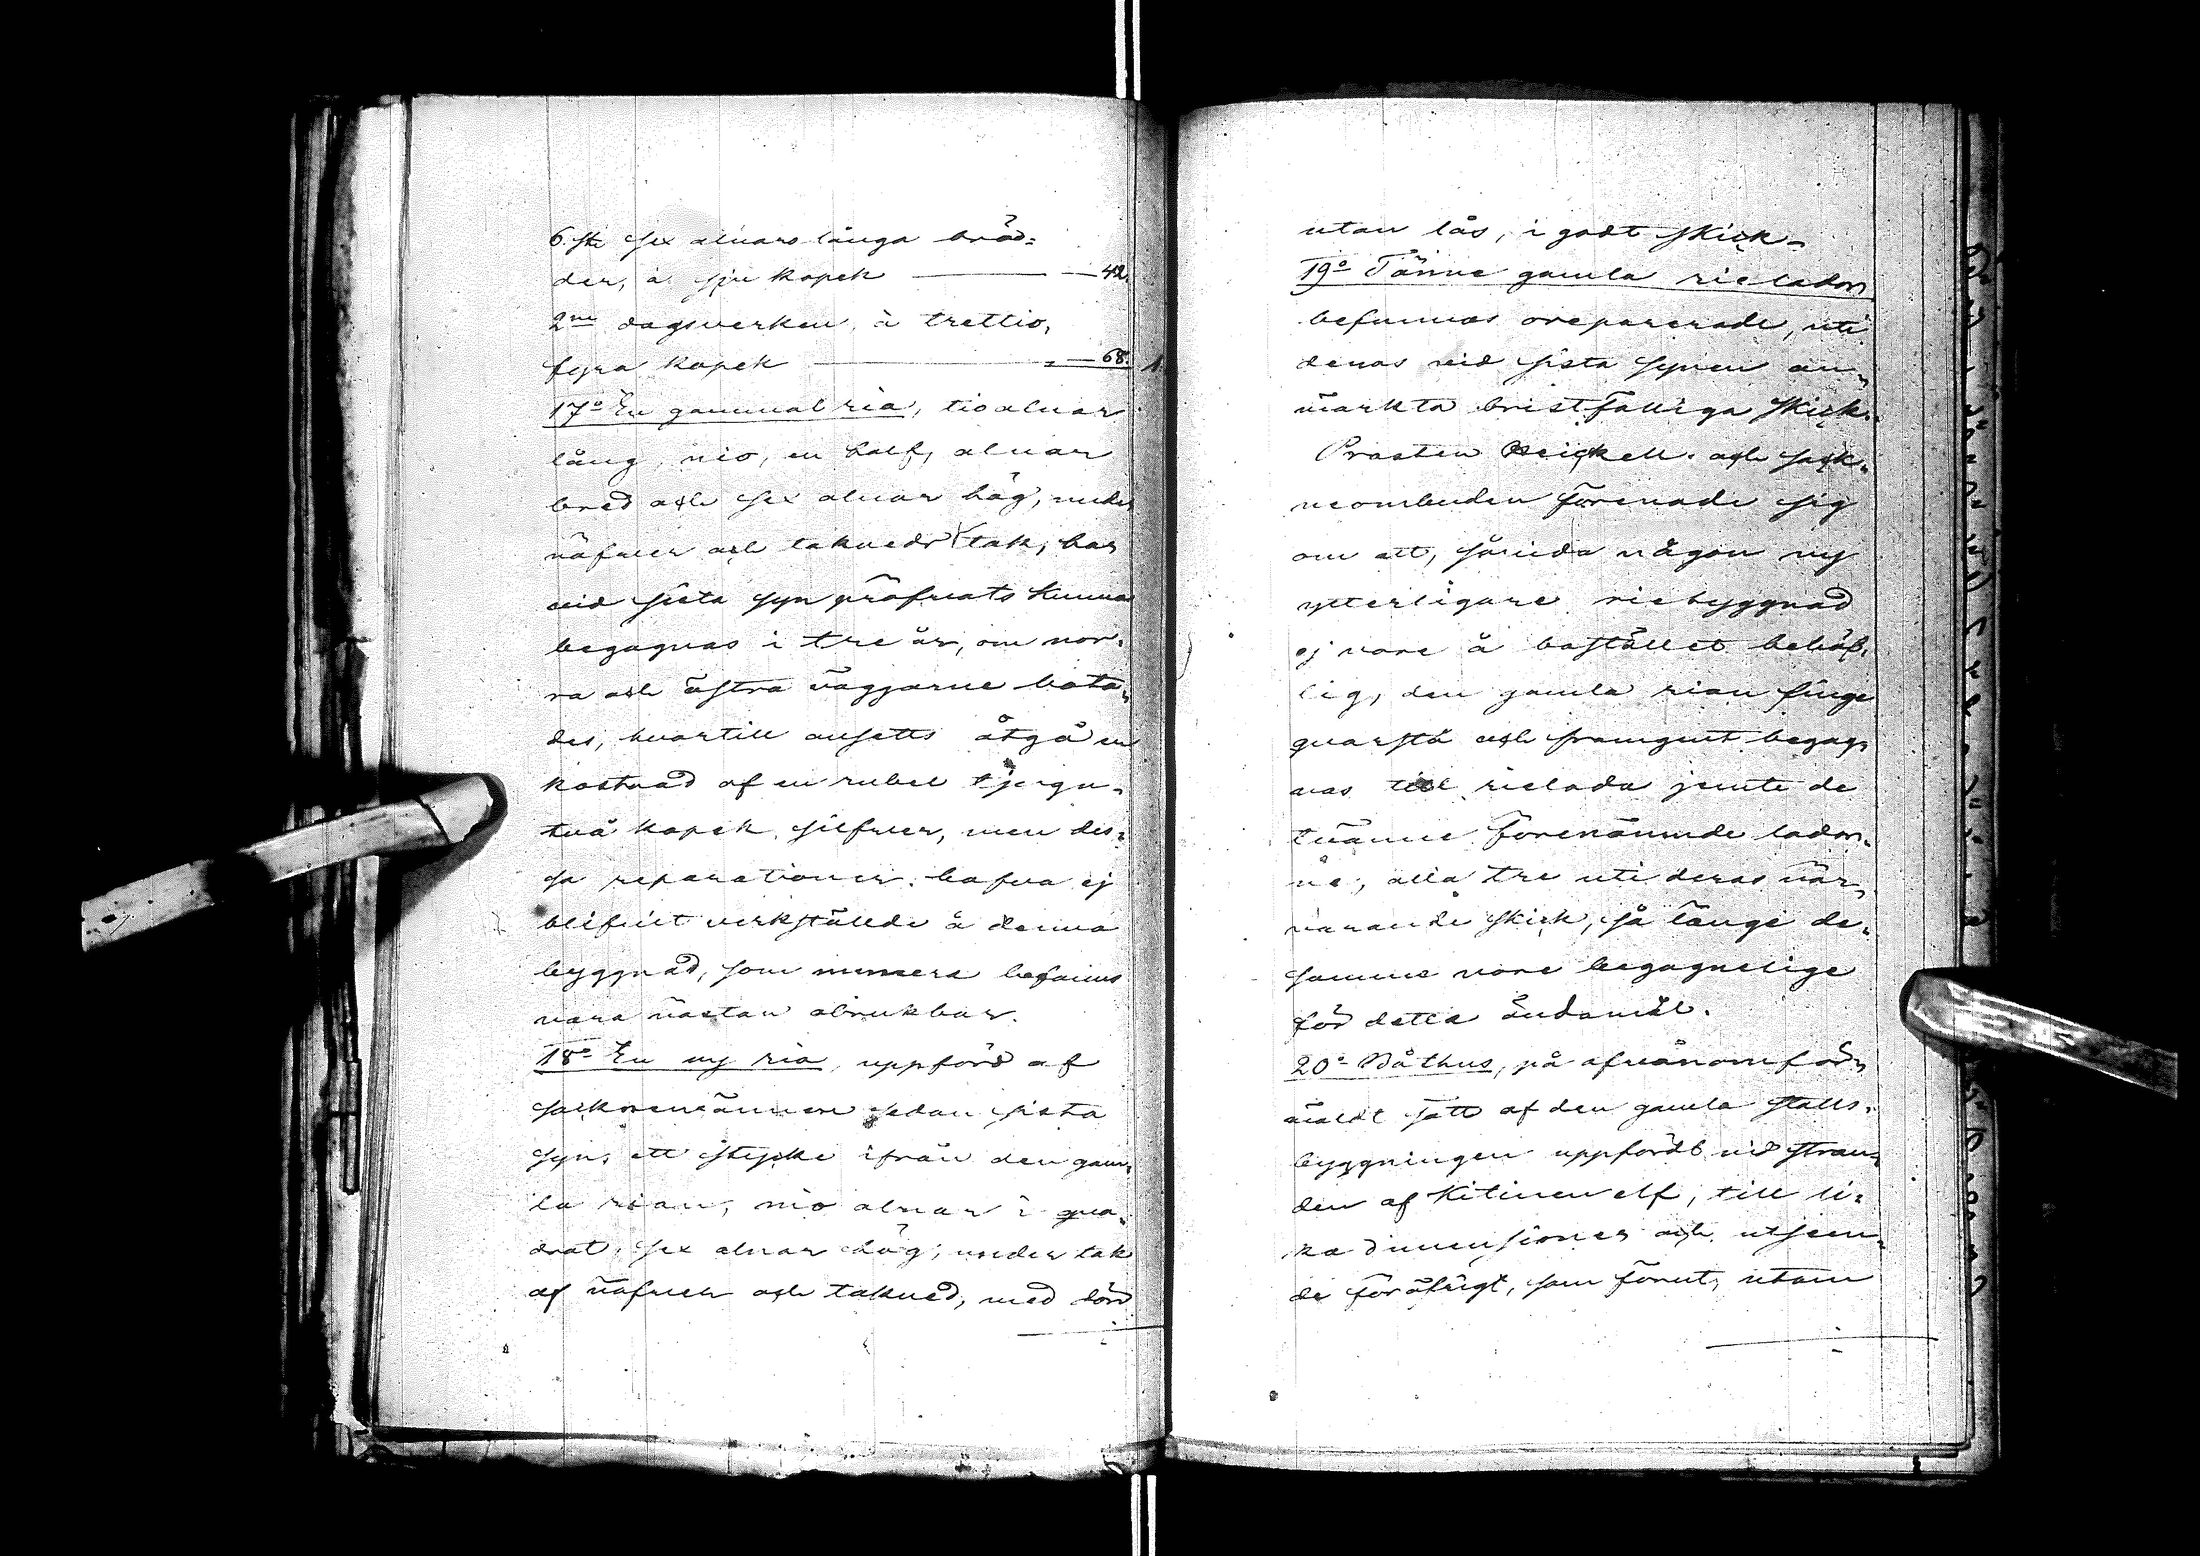 6. st. sex alnars långa brä¬
der, à sju kopek — —42.
2ne dagsverken, à trettio,
fyra kopek — „—68. 1.
17o En gammal ria, tio alnar
lång, nio, en half, alnar
bred och sex alnar hög, under
näfver och takvedstak, har
vid sista syn pröfvats kunna
begagnas i tre år, om nor¬
ra och östra väggarne bota¬
des, hvartill ansetts åtgå en
kostnad af en rubel tjugu¬
två kopek silfver, men des¬
sa reparationer hafva ej
blifvit verkstälde å denna
byggnad, som numera befanns
vara nästan obrukbar.
18o En ny ria, uppförd af
socknemännen sedan sista
syn, ett stycke ifrån den gam¬
la rian, nio alnar i qva¬
drat, sex alnar hög, under tak
af näfver och takved, med dörr
utan lås, i godt skick.
19o Tänne gamla rielador
befunnos oreparerade, uti
deras vid sista synen an¬
märkta bristfälliga skick.
Prosten Heickell och sock¬
neombuden förenade sig
om att, såvida någon ny
ytterligare riebyggnad
ej vore å bostället behöf¬
lig, den gamla rian finge
qvarstå och framgent begag¬
nas till rielada jemte de
tvänne förenämnde lador¬
ne, alla tre uti deras när¬
varande skick, så länge de¬
samme vore begagnelige
för detta ändamål.
20o Båthus, på ofvanomför¬
mäldt sätt af den gamla stalls¬
byggningen uppfördt vid stran¬
den af Kitinen elf, till li¬
ka dimensioner och utseen¬
de föröfrigt, som förut, utan